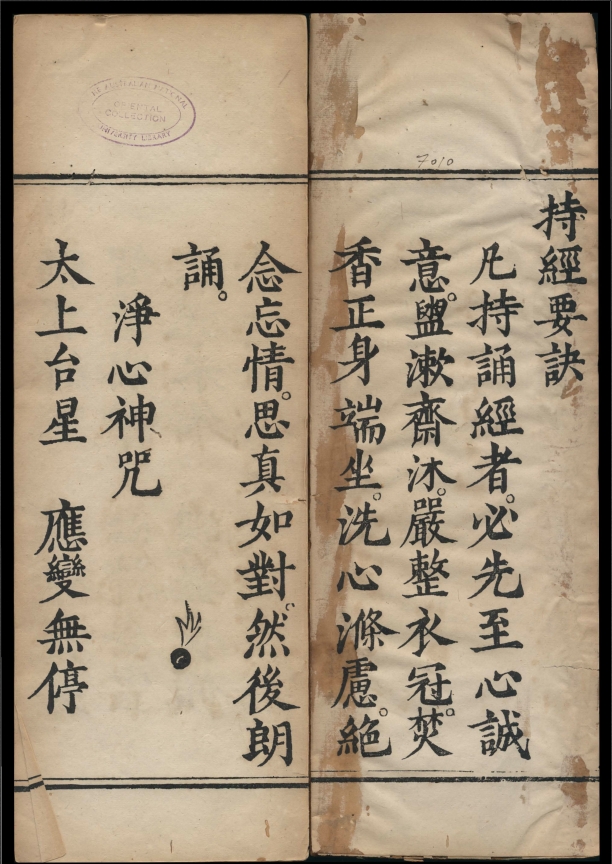 持經要訣
凡持誦經者。必先至心誠
意。盥漱齋沐。嚴整衣冠。焚
香正身端坐。洗心滌慮。絕
念忘情。思真如對。然後朗
誦。
淨心神咒
太上台星　應變無停
7010
ORIENTAL
COLLECTION
UNIVERSITY LIBRARY